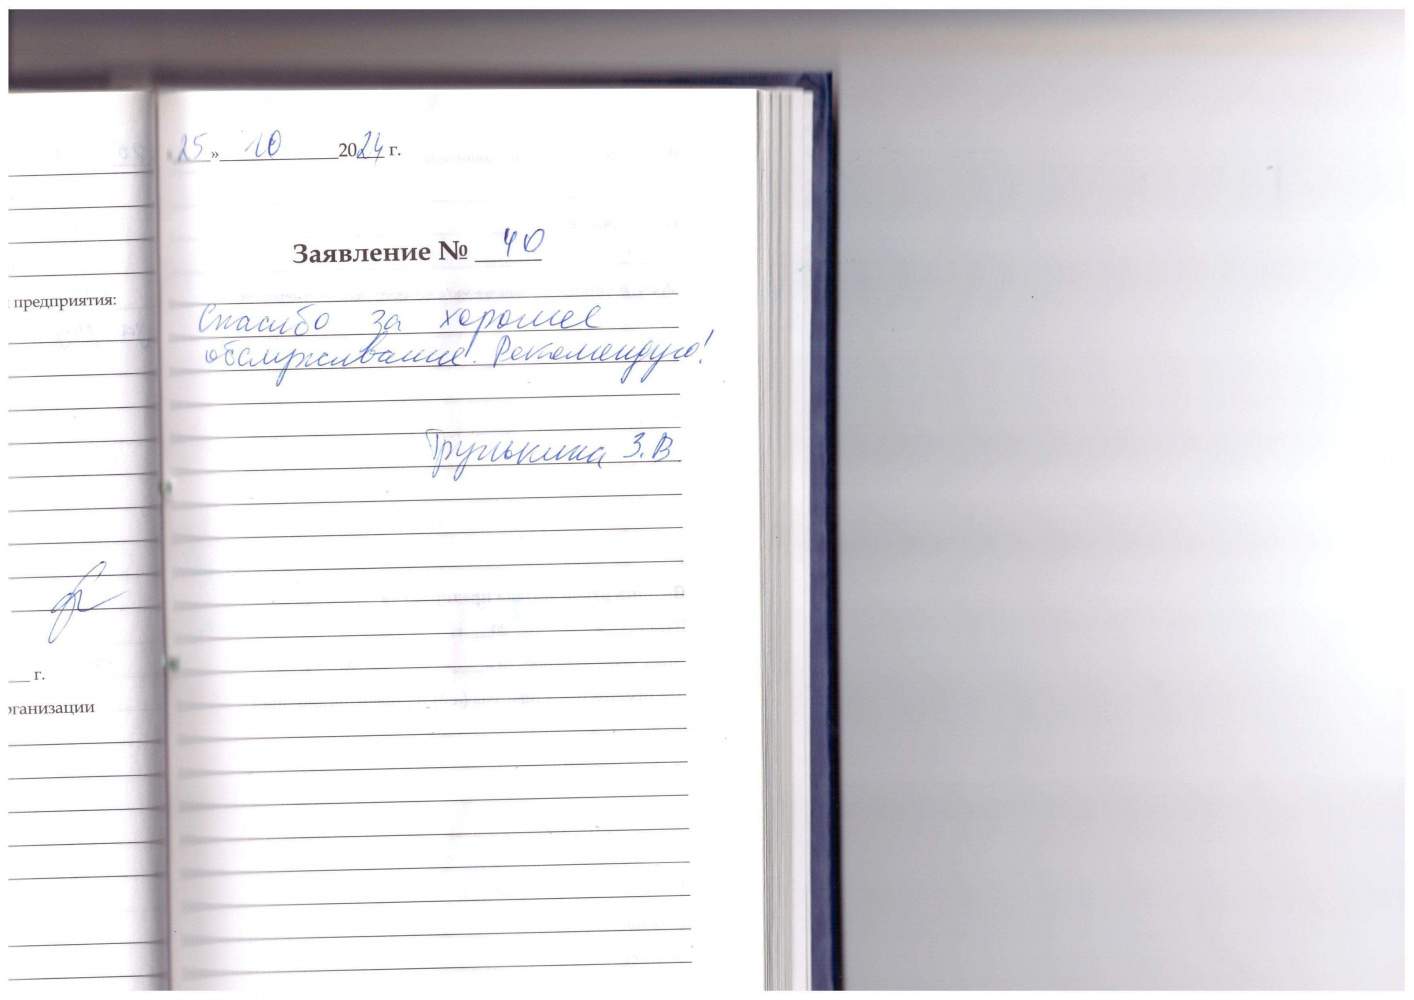 предприятия:
г.
рганизации
«25» 10 2024 г.
Заявление № 40
Спасибо за хорошее
обслуживание. Рекомендую!
З.В